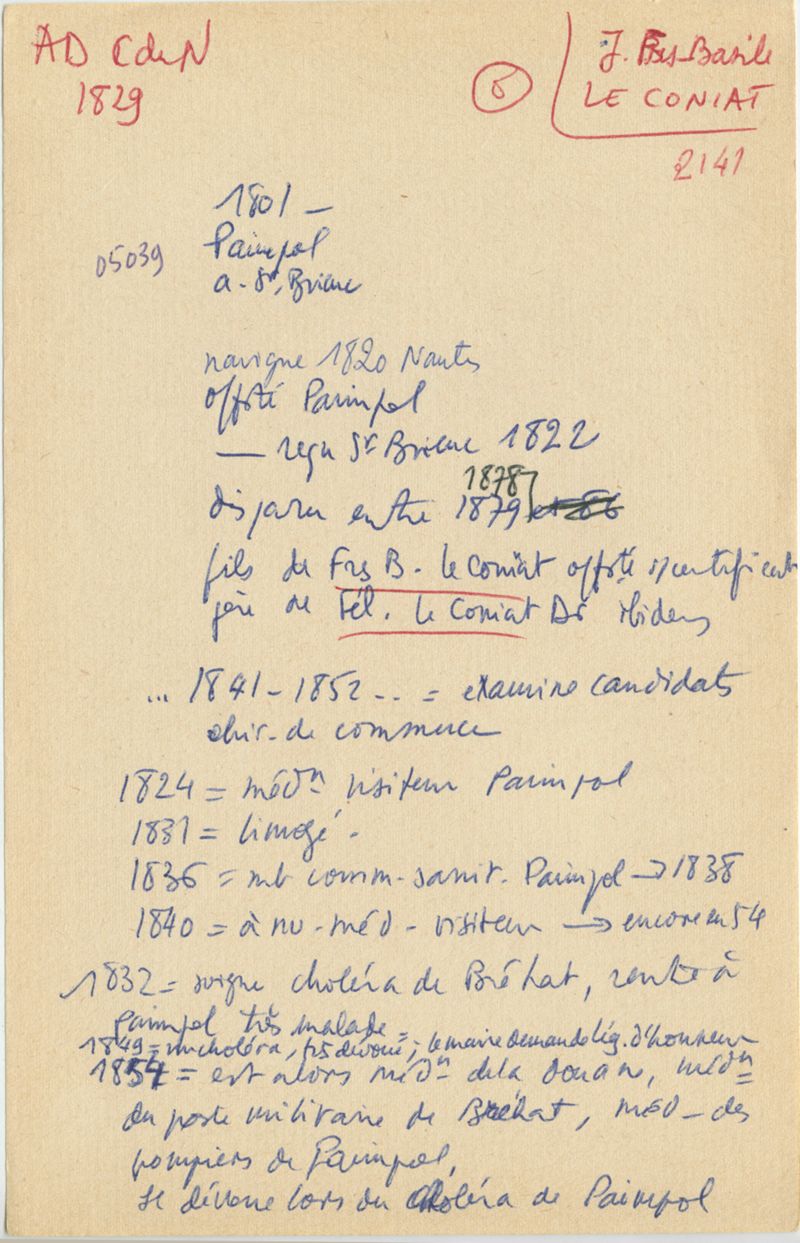 AD CduN
1829
6
J. Frs-Basile
LE CONIAT
2141
1801 —
05039
Paimpol
a. St. Brieuc
navigue 1820 Nantes
offté Paimpol
— reçu St Brieuc 1822
1878
disparu entre 1879 et 86
fils de Frs B. le Coniat offté s/certificat
père de Fél. le Coniat Dr ibidem
... 1841-1852 ... = examine candidats
chir. de commerce
1824 = médn visiteur Paimpol
1831 = limogé.
1836 = mb comm. sanit. Paimpol → 1838
1840 = à nv. méd. visiteur → encore en 54
1832 = soigne choléra de Bréhat, rentre à
Paimpol très malade =
1849 = choléra, trs dévoué ; le maire demande lég. d'honneur
1854 = est alors médn de la douane, médn
du poste militaire de Bréhat, méd. des
pompiers de Paimpol,
se dévoue lors du choléra de Paimpol